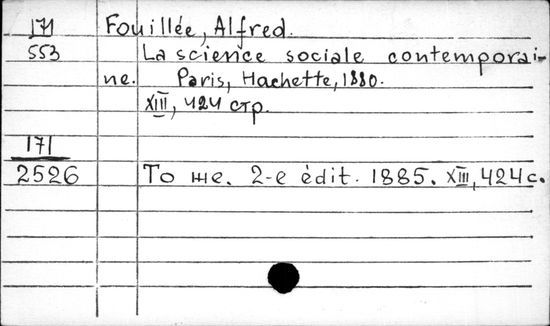 171 Fouillée, Alfred.
553 La science sociale contemporai-
ne. Paris, Hachette, 1880.
XIII, 424 стр.
171
2526 То же. 2-e èdit. 1885. XIII, 424 с.